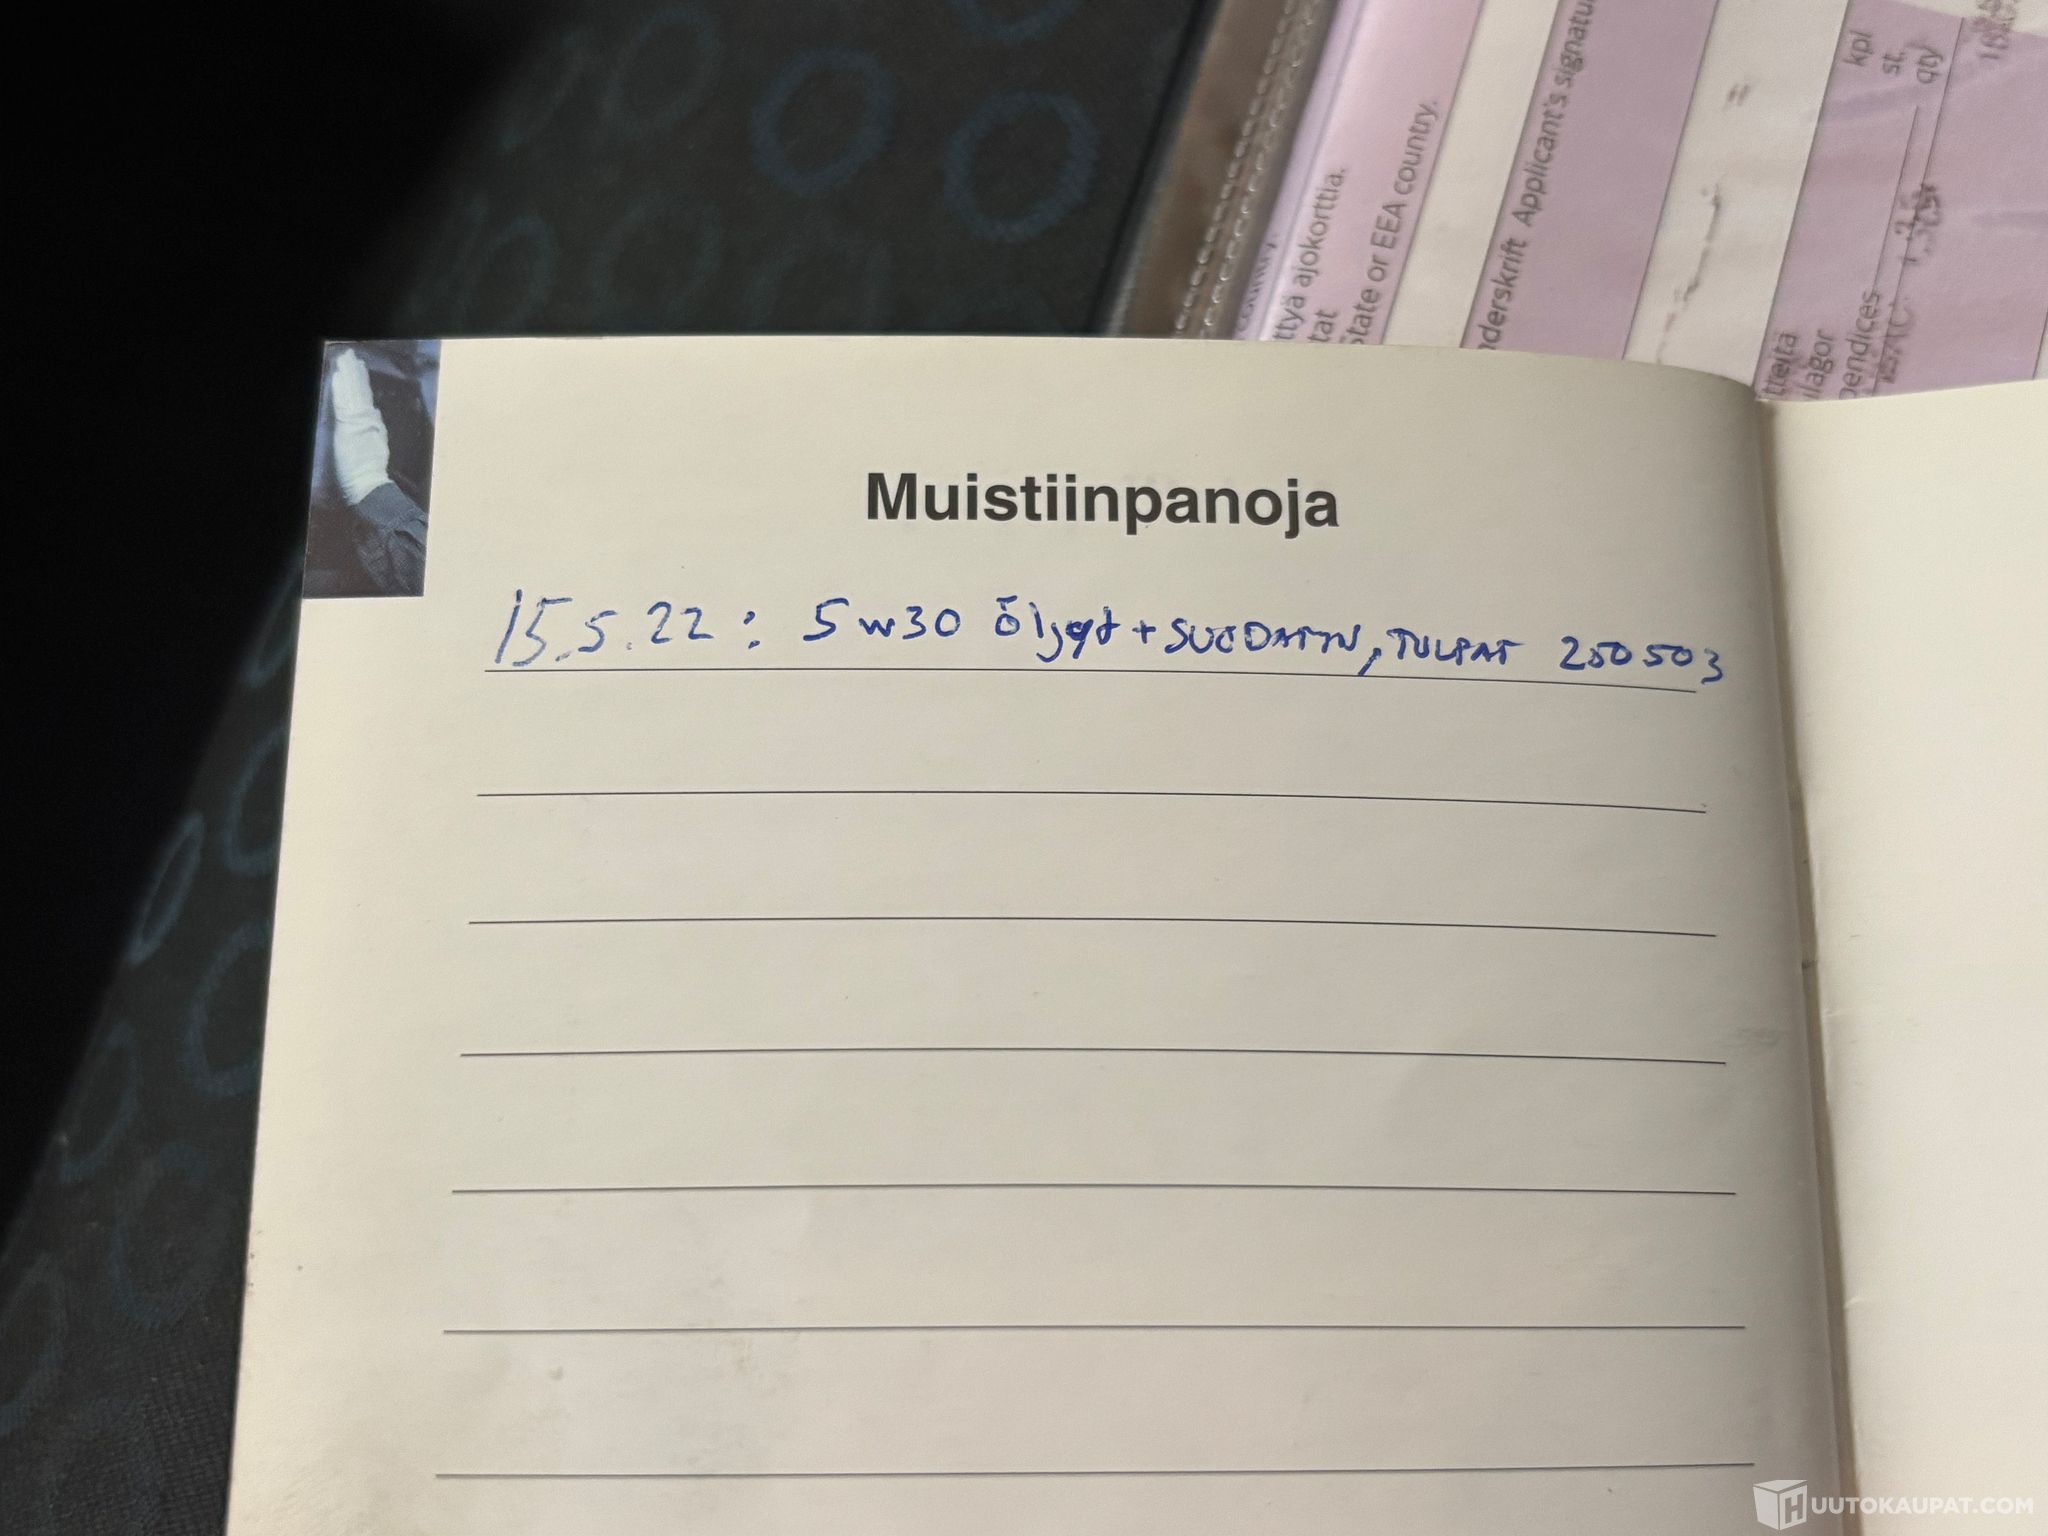 Muistiinpanoja
15.5.22: 5w30 öljyt + SUODATIN, TULPAT 250503
ttyä ajokorttia.
tat
State or EEA country.
nderskrift Applicant's signatu
kpl
st.
qty
tteita
ilagor
pendices
HUUTOKAUPAT.COM